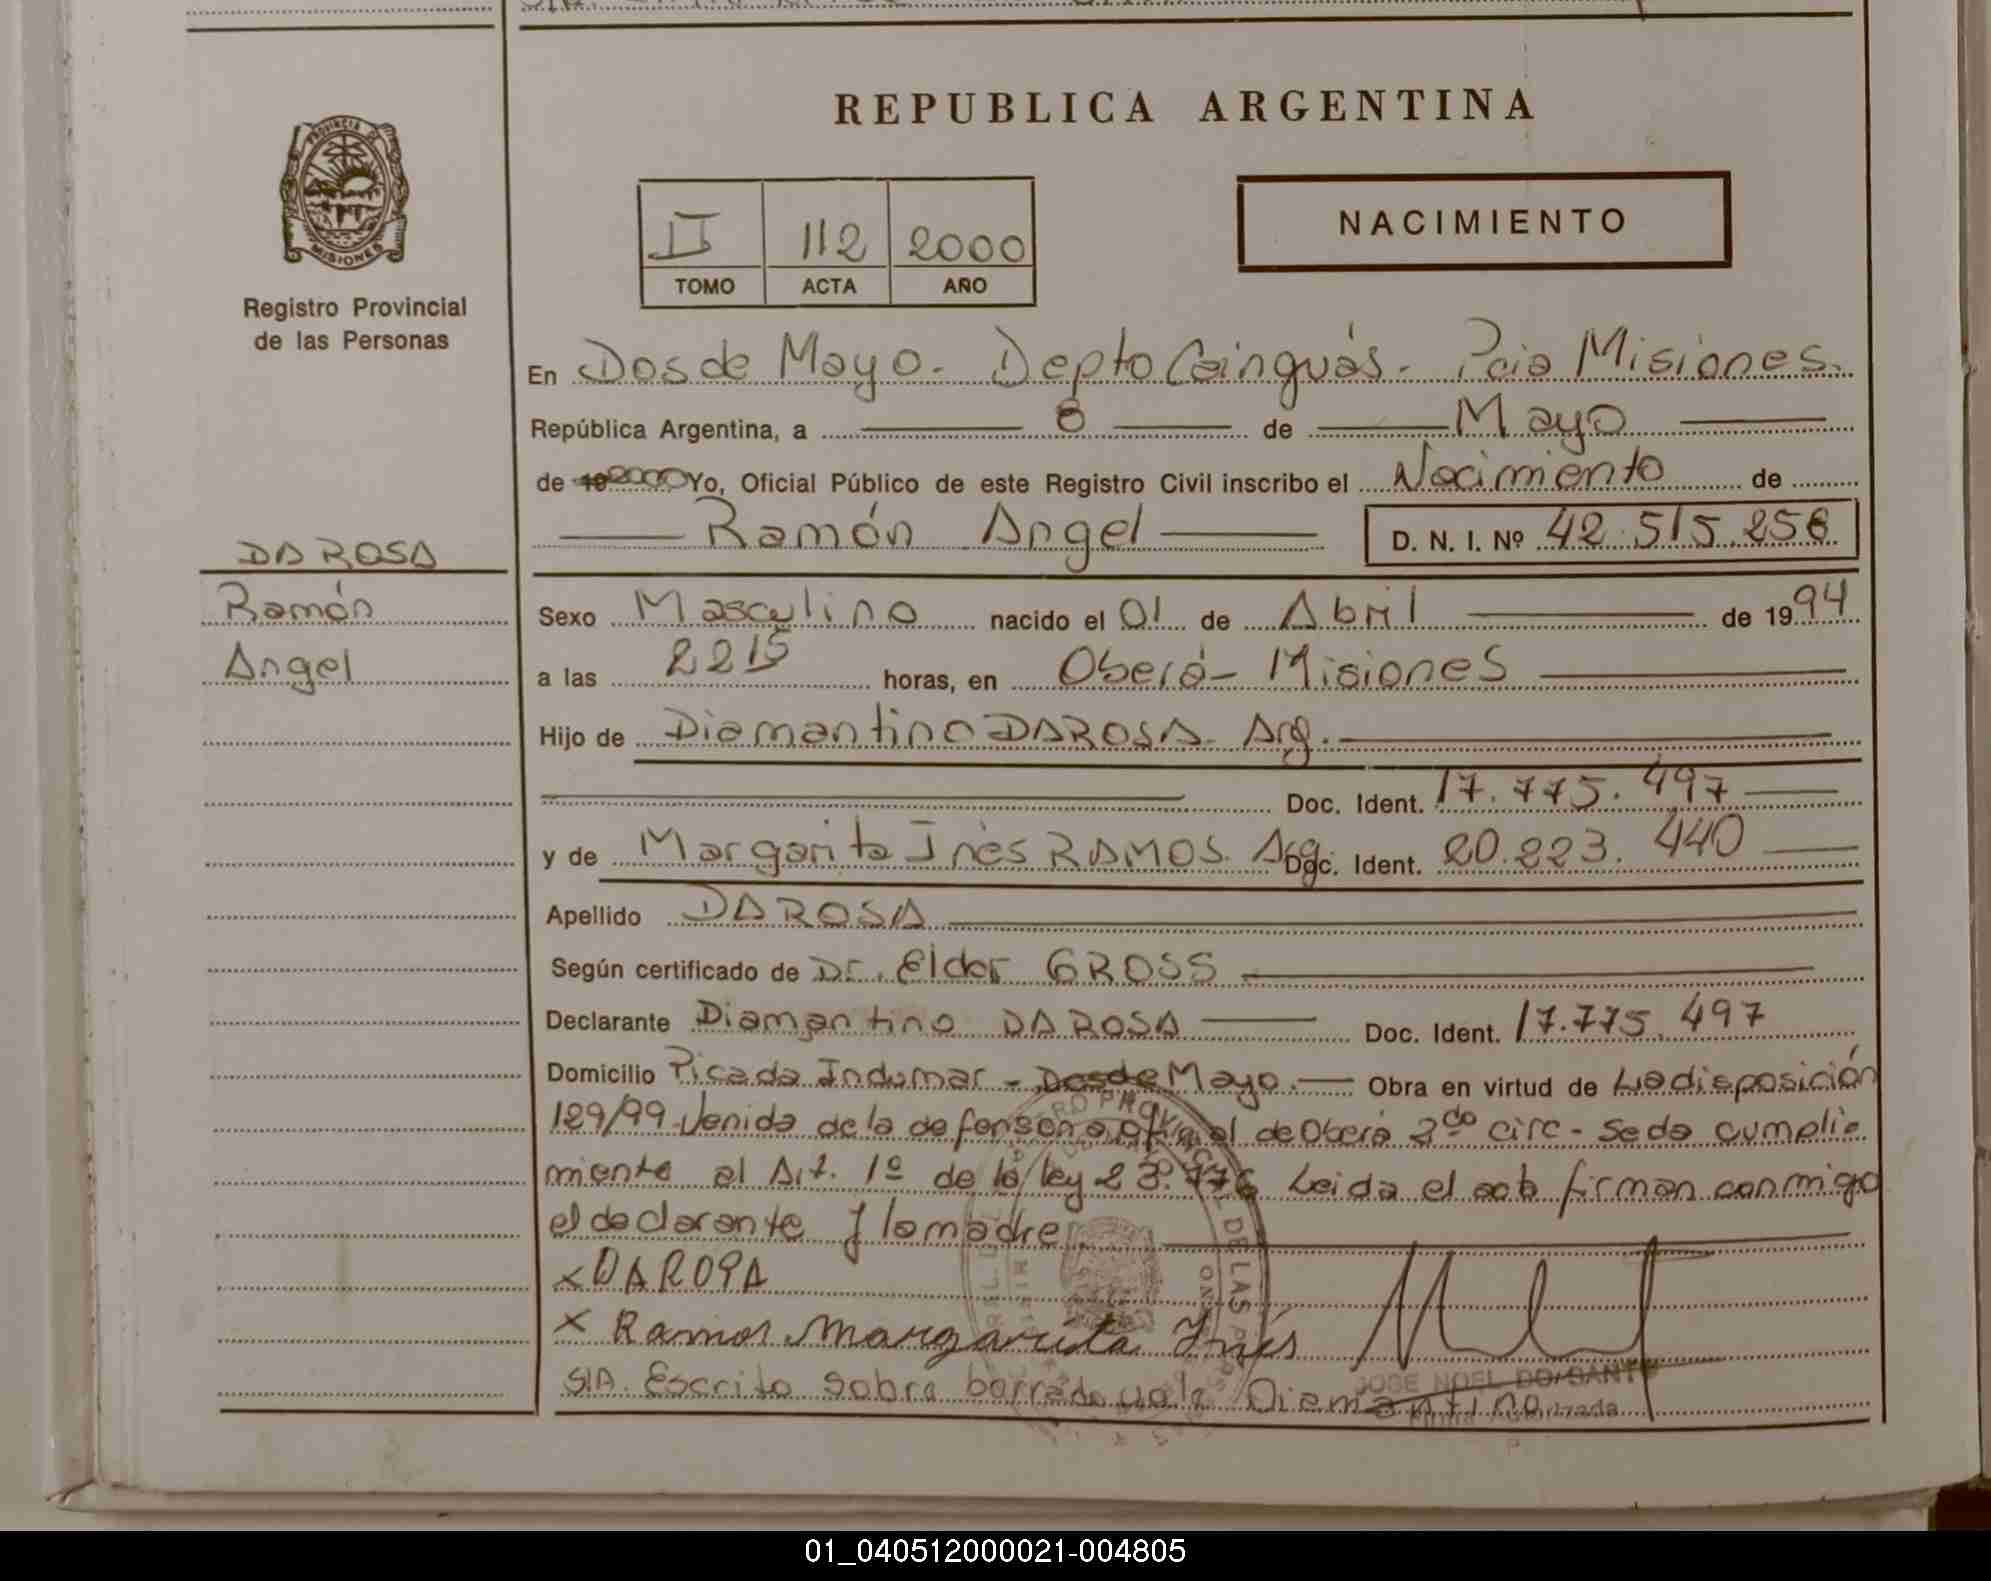 REPUBLICA ARGENTINA
PROVINCIA DE
MISIONES
Registro Provincial
de las Personas
II 112 2000
TOMO ACTA AÑO
NACIMIENTO
En Dos de Mayo. Depto Cainguás. Pcia Misiones.
República Argentina, a 8 de Mayo
de 19 2000 Yo, Oficial Público de este Registro Civil inscribo el Nacimiento de
Ramón Angel D. N. I. Nº 42.515.256
DA ROSA
Ramón
Angel
Sexo Masculino nacido el 01 de Abril de 1994
a las 2215 horas, en Oberá - Misiones
Hijo de Diamantino DA ROSA. Arg.
Doc. Ident. 17.775.497
y de Margarita Inés RAMOS. Arg. Doc. Ident. 20.223.440
Apellido DA ROSA
Según certificado de Dr. Elder GROSS
Declarante Diamantino DA ROSA Doc. Ident. 17.775.497
Domicilio Picada Indumar - Dos de Mayo. Obra en virtud de La disposición
129/99 Venida de la defensoria oficial de Oberá 2da circ - Se da cumpli
miento al Art. 1º de la ley 23.776 Leida el acta firman conmigo
el declarante y la madre
x DA ROSA
x Ramos Margarita Inés
S/A. Escrito sobre borrado vale Diamantino
JOSE NOEL DO SANTO
01_040512000021-004805